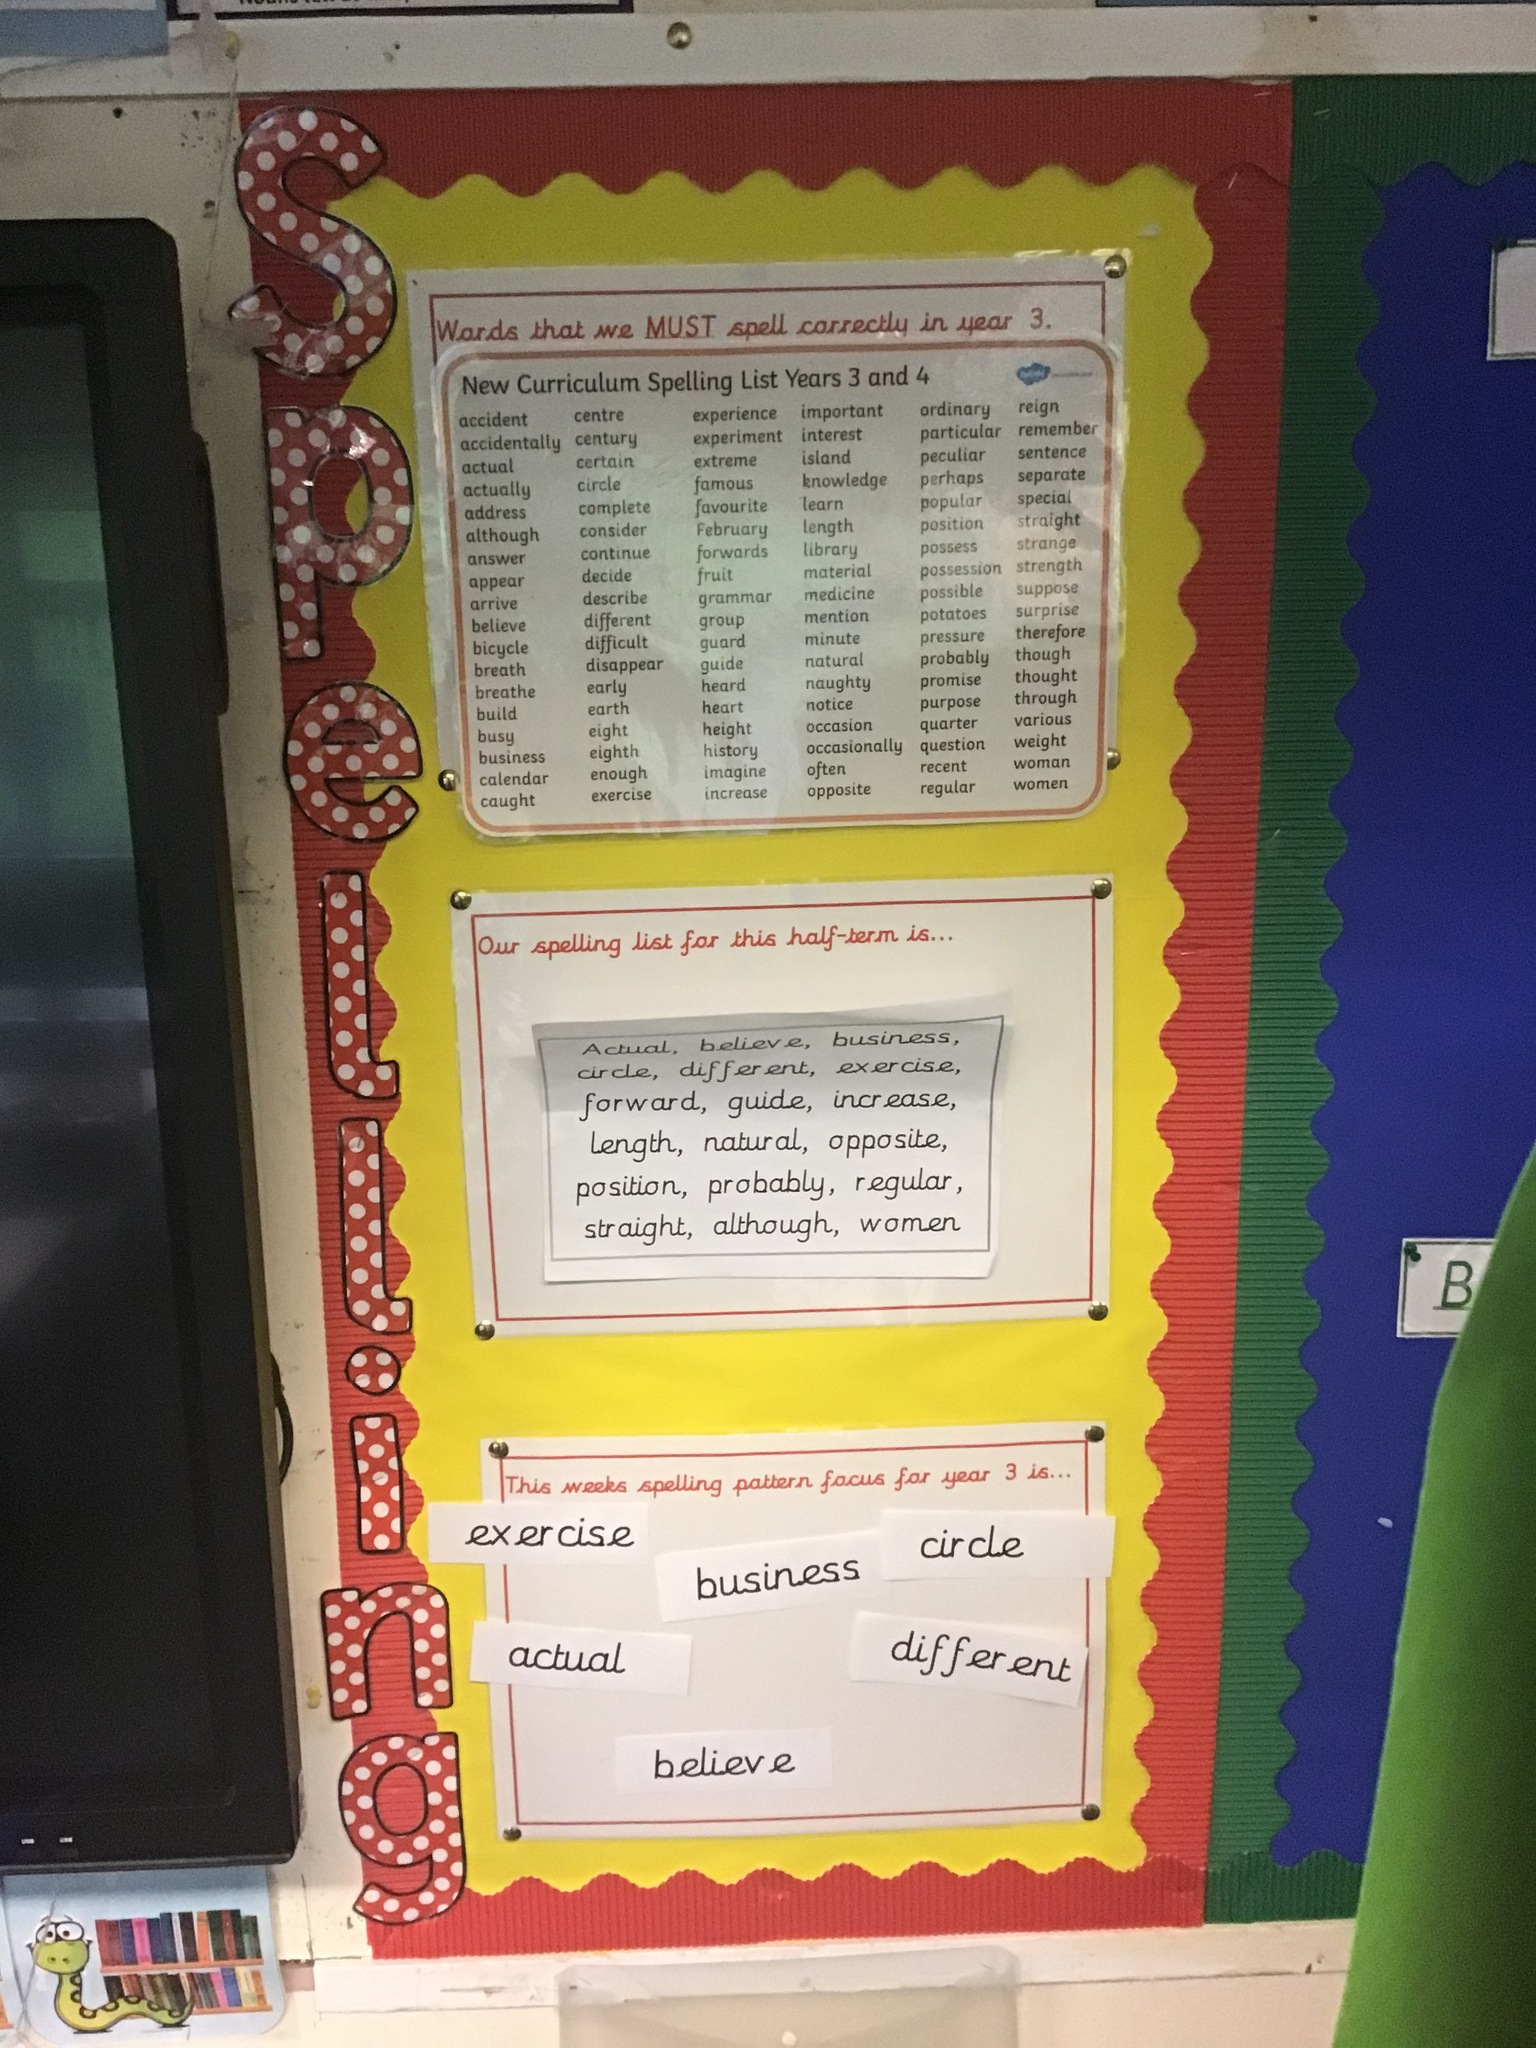 Spelling
Words that we MUST spell correctly in year 3.
New Curriculum Spelling List Years 3 and 4
accident
accidentally
actual
actually
address
although
answer
appear
arrive
believe
bicycle
breath
breathe
build
busy
business
calendar
caught
centre
century
certain
circle
complete
consider
continue
decide
describe
different
difficult
disappear
early
earth
eight
eighth
enough
exercise
experience
experiment
extreme
famous
favourite
February
forwards
fruit
grammar
group
guard
guide
heard
heart
height
history
imagine
increase
important
interest
island
knowledge
learn
length
library
material
medicine
mention
minute
natural
naughty
notice
occasion
occasionally
often
opposite
ordinary
particular
peculiar
perhaps
popular
position
possess
possession
possible
potatoes
pressure
probably
promise
purpose
quarter
question
recent
regular
reign
remember
sentence
separate
special
straight
strange
strength
suppose
surprise
therefore
though
thought
through
various
weight
woman
women
Our spelling list for this half-term is...
Actual, believe, business,
circle, different, exercise,
forward, guide, increase,
length, natural, opposite,
position, probably, regular,
straight, although, women
This weeks spelling pattern focus for year 3 is...
exercise
circle
business
actual
different
believe
B